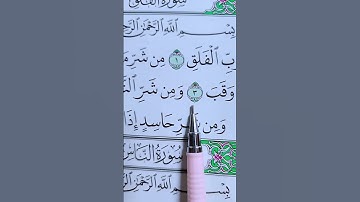 سُورَةُ الْفَلَقِ
بِسْمِ اللَّهِ الرَّحْمَٰنِ الرَّحِ
بِّ الْفَلَقِ ١ مِن شَرِّ مَا
وَقَبَ ٣ وَمِن شَرِّ النَّ
وَمِن حَاسِدٍ إِذَا
سُورَةُ النَّاسِ
بِسْمِ اللَّهِ الرَّحْمَٰنِ الرَّ